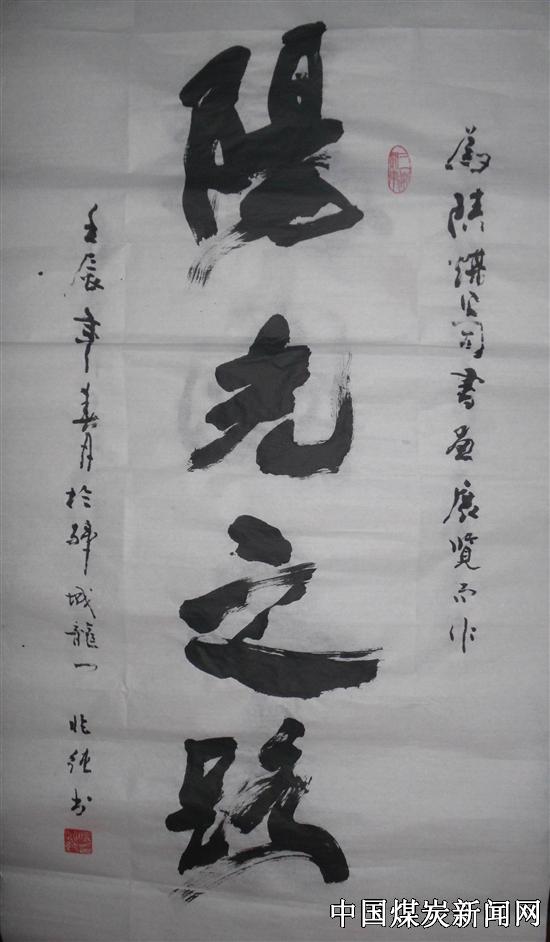 為陝煤公司書畫展覽而作
陽光之路
壬辰年春月於韓城龍門
書
中国煤炭新闻网